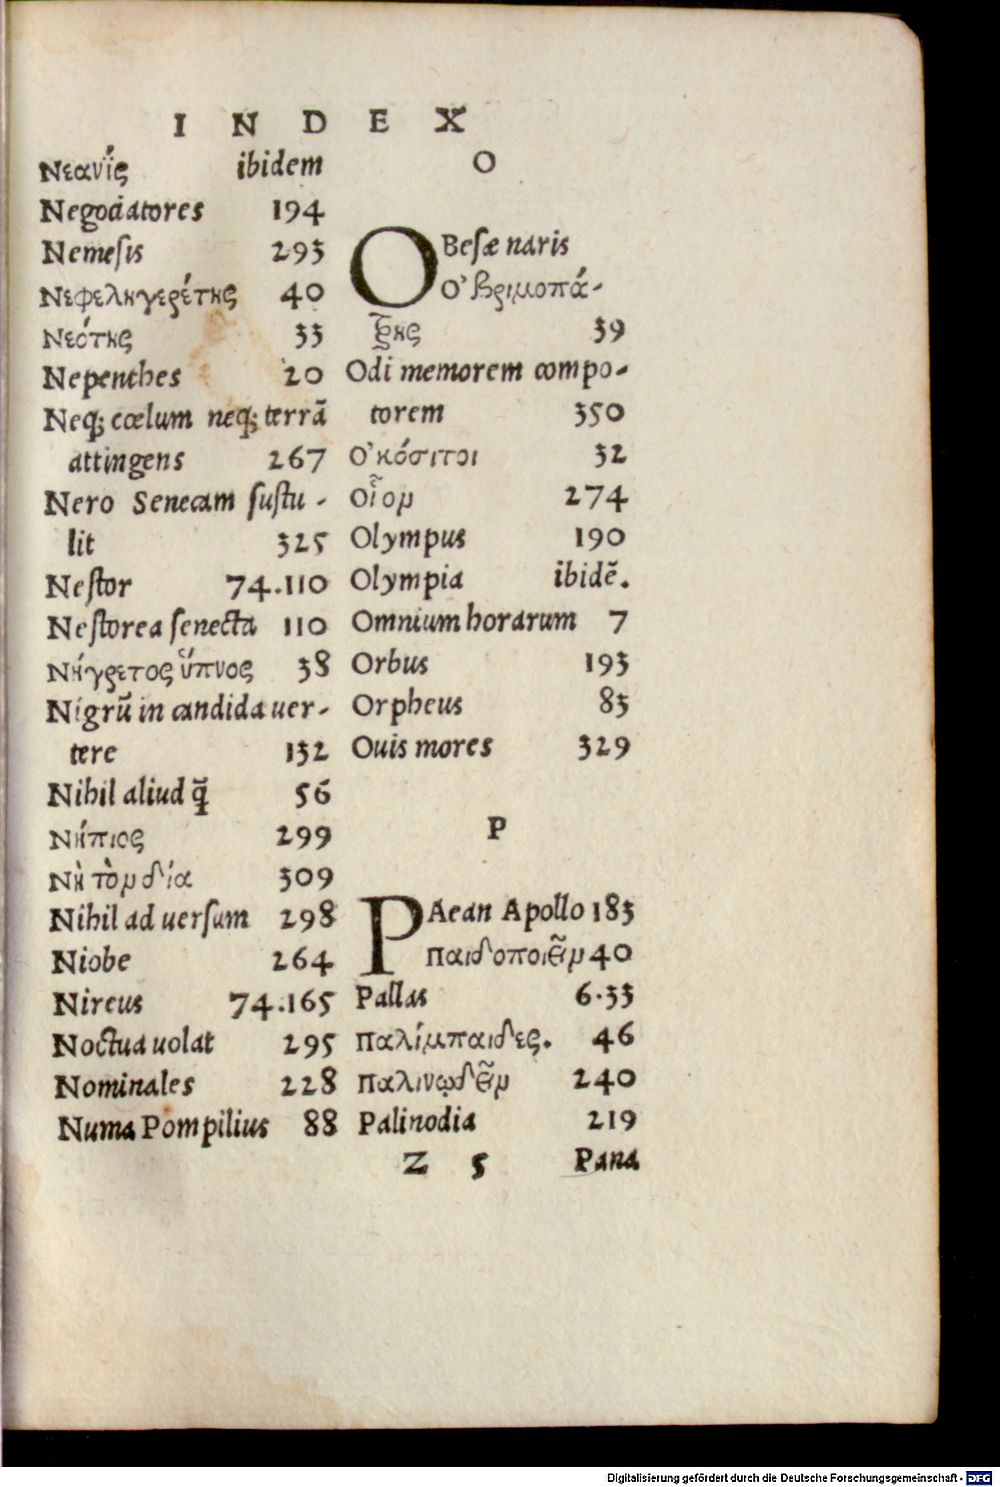 INDEX
Νεανίς ibidem
Negociatores 194
Nemesis 293
Νεφεληγερέτης 40
Νεότης 33
Nepenthes 20
Neq; cœlum neq; terrā
attingens 267
Nero Senecam ſuſtu-
lit 325
Neſtor 74.110
Neſtorea ſenecta 110
Νήγρετος ὕπνος 38
Nigrū in candida uer-
tere 132
Nihil aliud q̃ 56
Νήπιος 299
Νὴ τὸν δία 309
Nihil ad uerſum 298
Niobe 264
Nireus 74.165
Noctua uolat 295
Nominales 228
Numa Pompilius 88
O
OBeſæ naris
Ὀβριμοπά-
τρης 39
Odi memorem compo-
torem 350
Ὀκόσιτοι 32
Οἷον 274
Olympus 190
Olympia ibidē.
Omnium horarum 7
Orbus 193
Orpheus 83
Ouis mores 329
P
PAean Apollo 183
παιδοποιεῖν 40
Pallas 6.33
παλίμπαιδες. 46
παλινῳδεῖν 240
Palinodia 219
Z 5 Pana
Digitalisierung gefördert durch die Deutsche Forschungsgemeinschaft - DFG